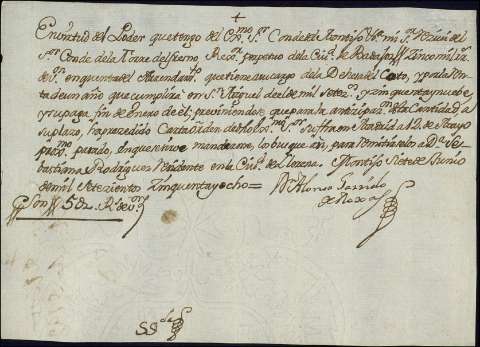 +
En virtud del Poder que tengo del Exmo Sr Conde de Montijo &a mi Sr Recivi del
Sr Conde de la Torre del fresno Rexor perpetuo de la Ciud de Badajoz Zinco mil Rs
de von en quenta del Arrendamto que tiene a su cargo de la Dehesa del Coto, y pa la Renta
de un año que cumplirá en Sn Miguel de el de mil Setezs y zinquenta y nuebe
y su paga fin de Enero de el; previniendo, que para la antizipazn de la Cantidad a
su plazo, ha prezedido Carta Orden de dho Exmo Sr su fha en Madrid a 12 de Mayo
proxmo pasado, en que sirve mandarme, los busque asi, para remitirselos a Da Se-
bastiana Rodriguez Residente en la Ciud de Llerena. Montijo Siete de Junio
de mil Setezientos Zinquenta y ocho=
Dn Alonso Garrido
de Roxas
Son 5 Rs de von